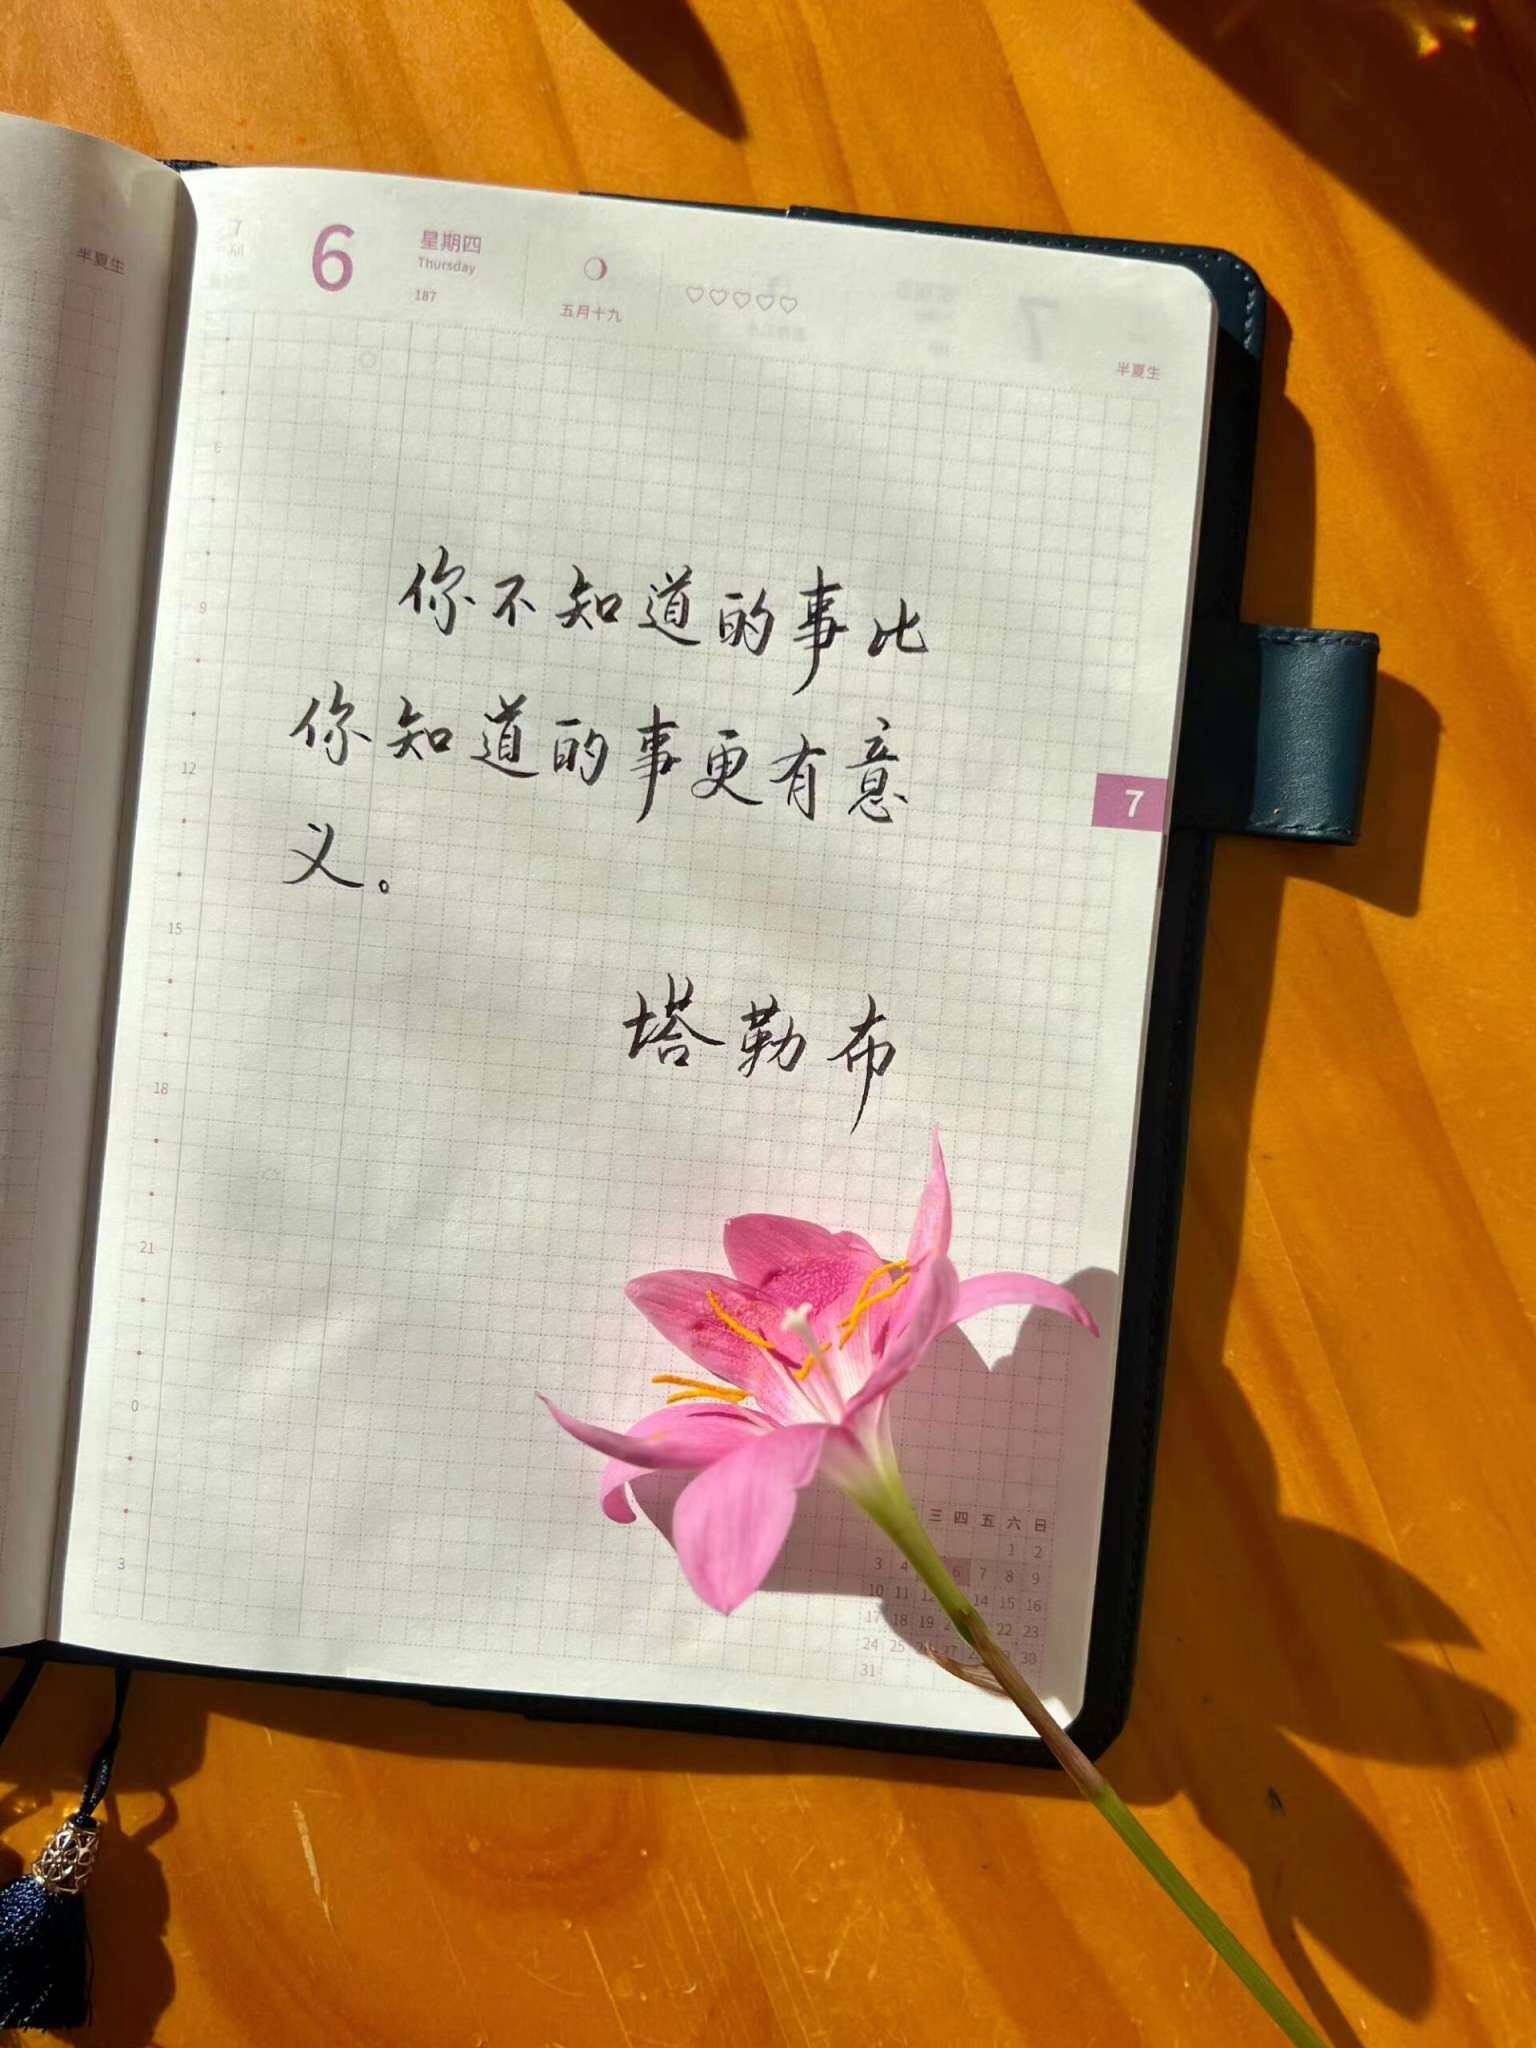 半夏生
7
6
星期四
Thursday
187
五月十九
半夏生
6
9
12
15
18
21
0
3
7
你不知道的事比
你知道的事更有意
义。
塔勒布
三 四 五 六 日
1 2
3 4 6 7 8 9
10 11 14 15 16
17 18 19 22 23
24 25 26 27 30
31